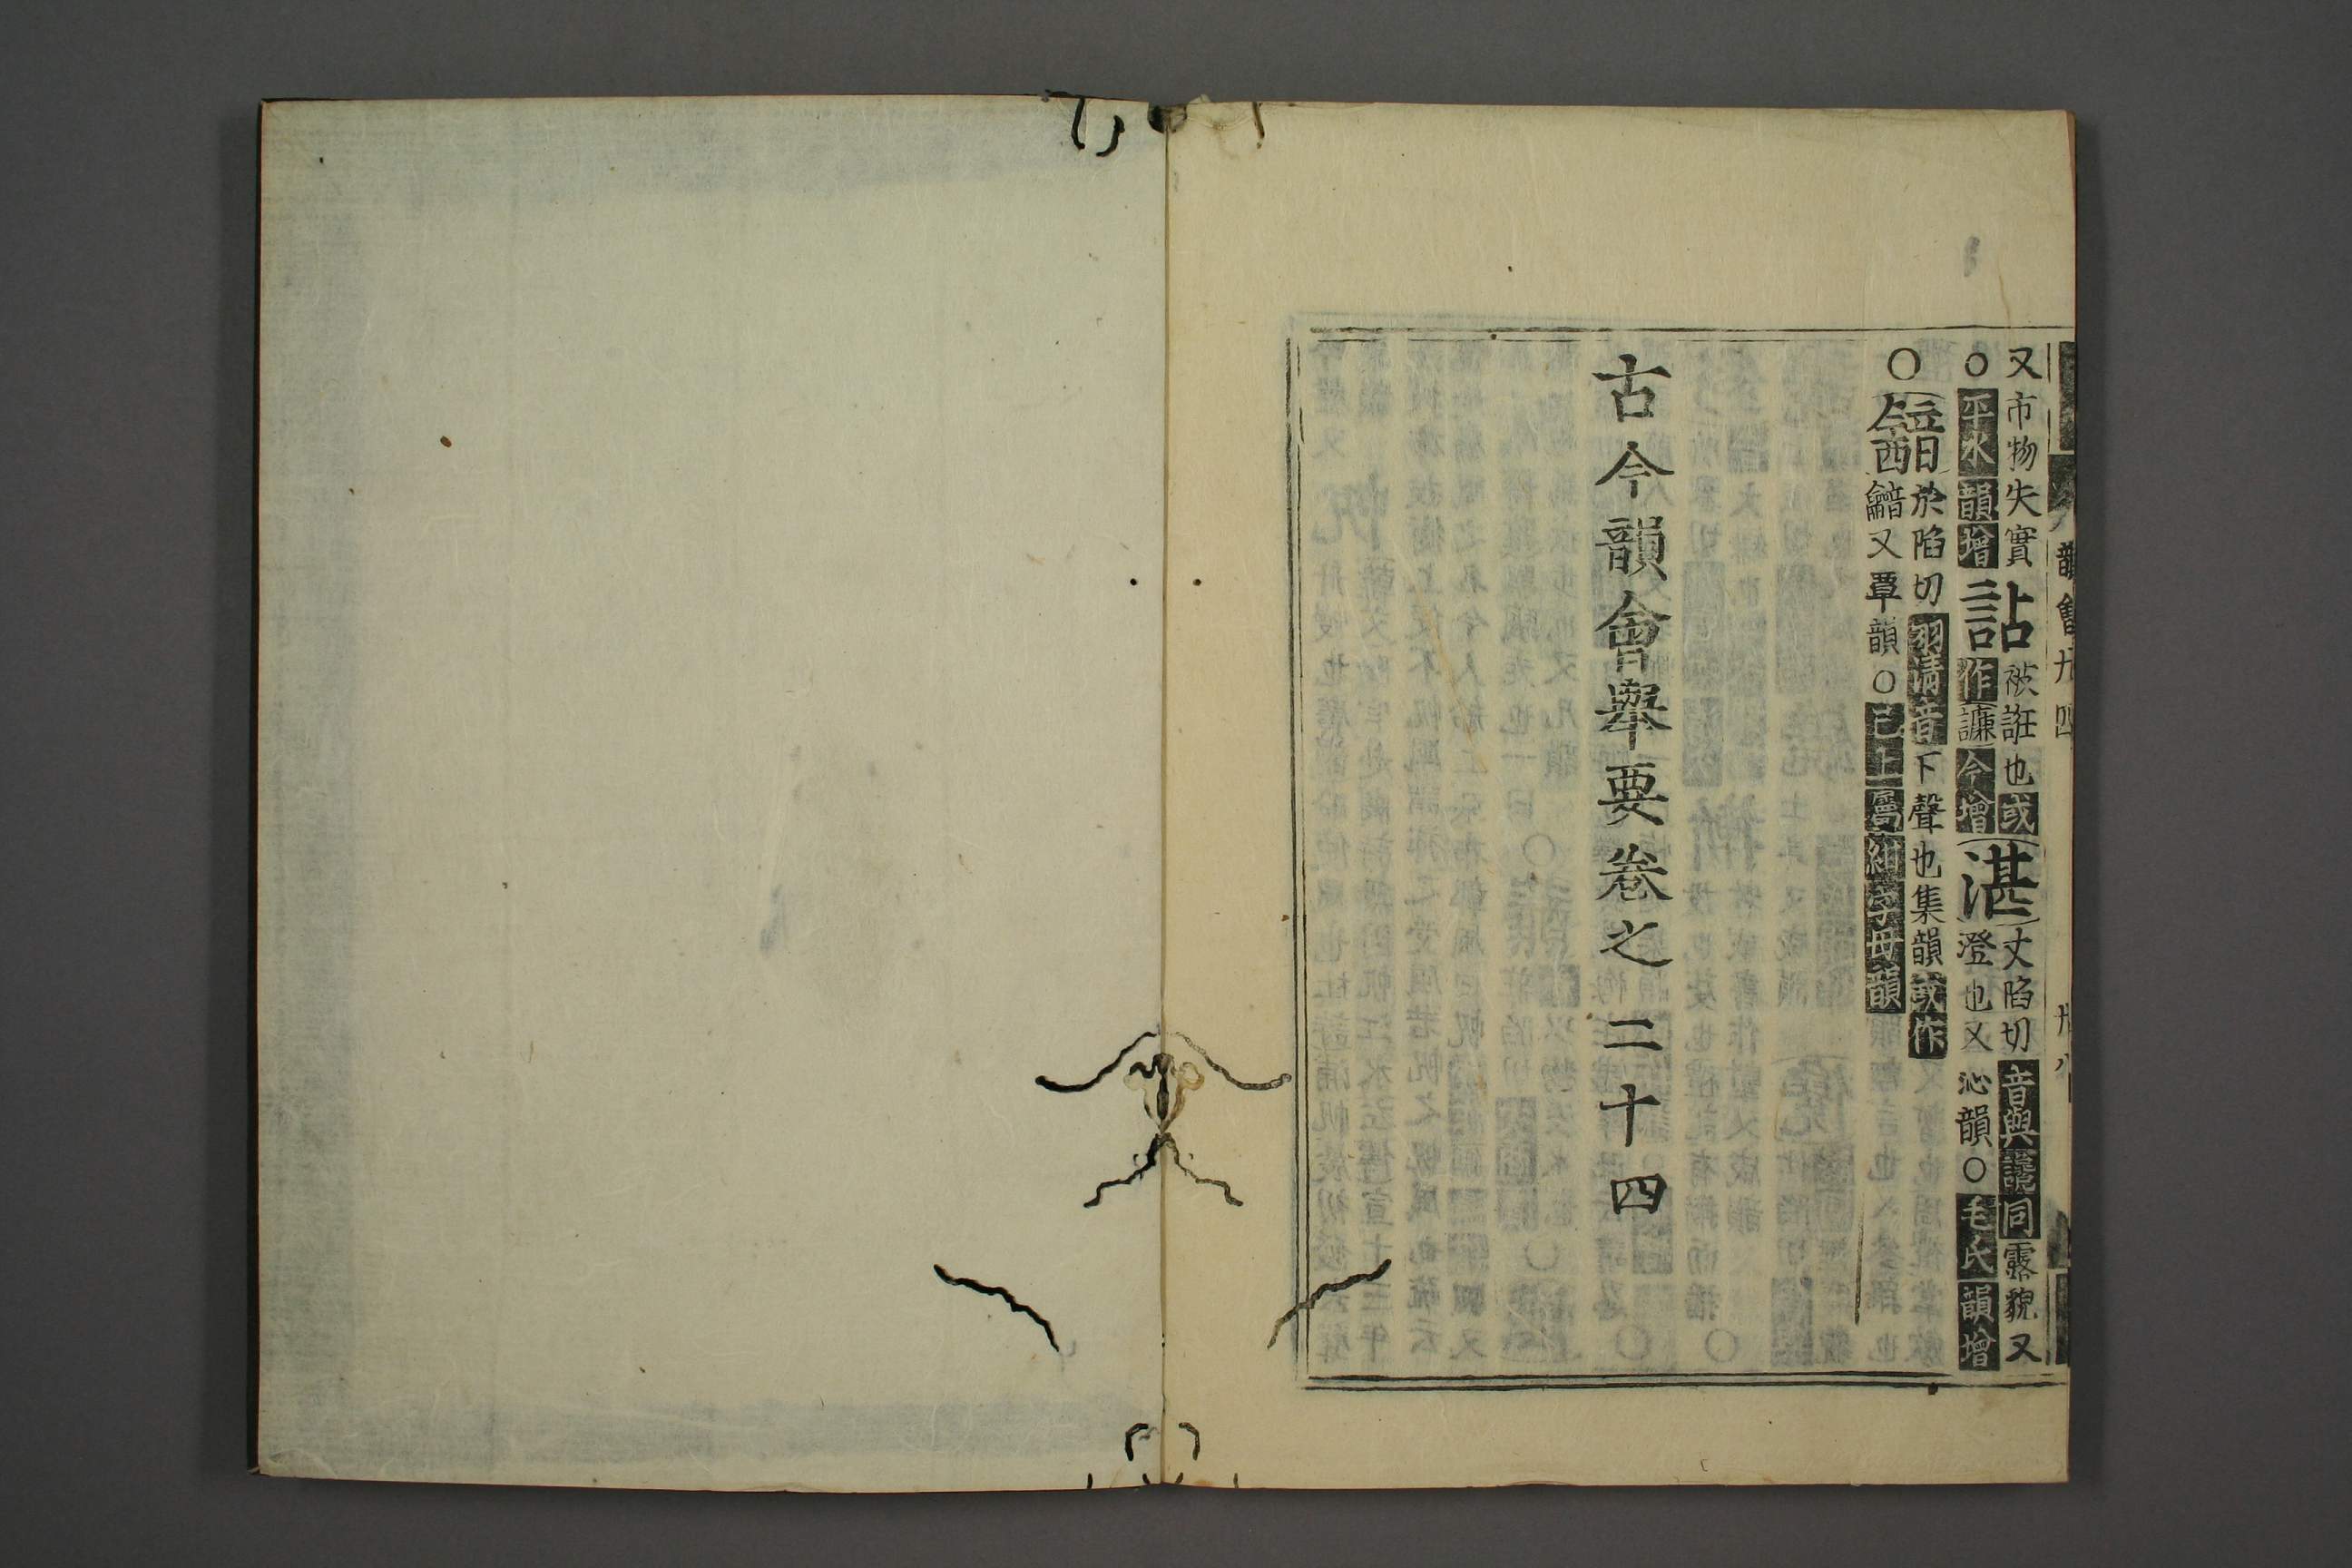 又市物失實
○平水韻增
詀被誑也或
作譧今增
湛丈陷切音與䜛同露貌又
澄也又沁韻○毛氏韻增
○韽於陷切羽清音下聲也集韻或作
韽又覃韻○已上屬紺字母韻
古今韻會舉要卷之二十四